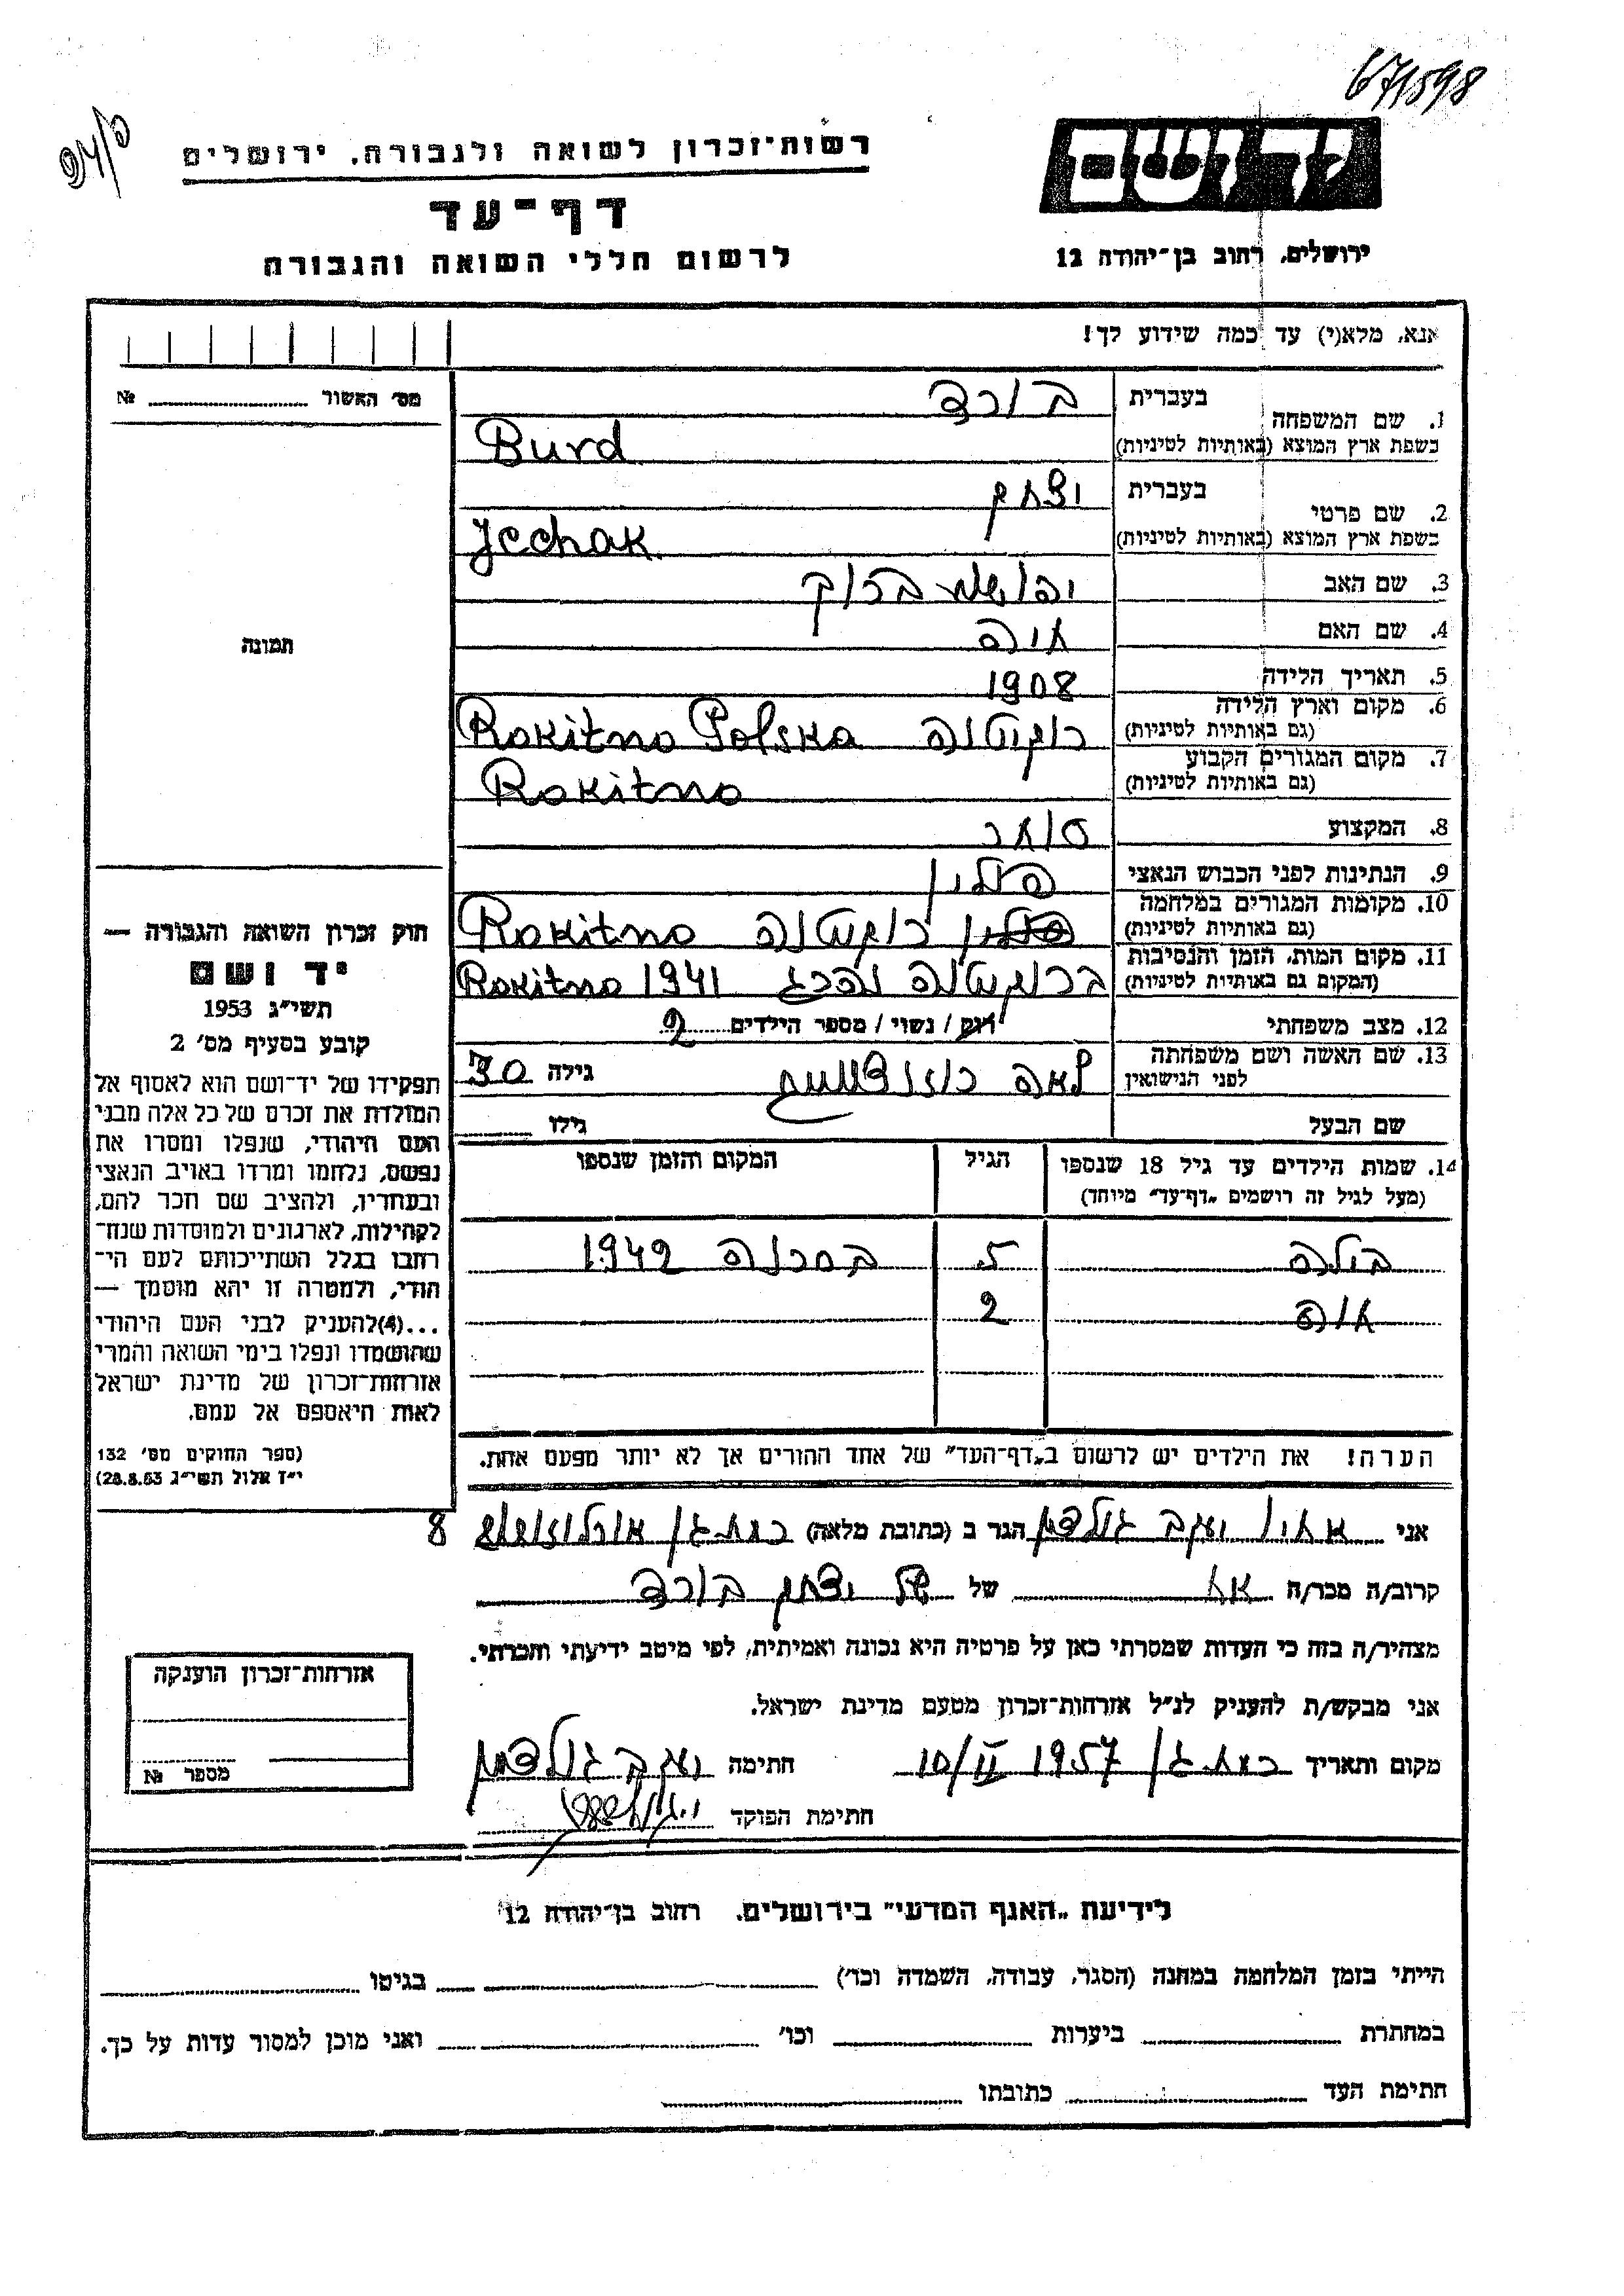 671598
רשות־זכרון לשואה ולגבורה, ירושלים
יד ושם
דף־עד
לרשום חללי השואה והגבורה
ירושלים, רחוב בן־יהודה 12
אנא, מלא(י) עד כמה שידוע לך!
מס׳ האשור № 
1. שם המשפחה בעברית בורד
בשפת ארץ המוצא (באותיות לטיניות) Burd
2. שם פרטי בעברית יצחק
בשפת ארץ המוצא (באותיות לטיניות) Jcchak
תמונה
3. שם האב יהושע ברוך
4. שם האם
5. תאריך הלידה 1908
6. מקום וארץ הלידה (גם באותיות לטיניות) רוקיטנה Rokitno Polska
7. מקום המגורים הקבוע (גם באותיות לטיניות) Rokitno
8. המקצוע סוחר
9. הנתינות לפני הכבוש הנאצי פולין
10. מקומות המגורים במלחמה (גם באותיות לטיניות) רוקיטנה Rokitno
11. מקום המות, הזמן והנסיבות (המקום גם באותיות לטיניות) ברוקיטנה נהרג 1941 Rokitno
12. מצב משפחתי רווק / נשוי / מספר הילדים 2
13. שם האשה ושם משפחתה לפני הנישואין לאה גילה 30
שם הבעל גילו
14. שמות הילדים עד גיל 18 שנספו הגיל המקום והזמן שנספו
(מעל לגיל זה רושמים „דף־עד״ מיוחד)
ביילה 5 1942
2
הערה! את הילדים יש לרשום ב„דף־העד״ של אחד ההורים אך לא יותר מפעם אחת.
חוק זכרון השואה והגבורה —
יד ושם
תשי״ג 1953
קובע בסעיף מס׳ 2
תפקידו של יד־ושם הוא לאסוף אל
המולדת את זכרם של כל אלה מבני
העם היהודי, שנפלו ומסרו את
נפשם, נלחמו ומרדו באויב הנאצי
ובעוזריו, ולהציב שם וזכר להם,
לקהילות, לארגונים ולמוסדות שנח־
רבו בגלל השתייכותם לעם הי־
הודי, ולמטרה זו יהא מוסמך —
...(4)להעניק לבני העם היהודי
שהושמדו ונפלו בימי השואה והמרי
אזרחות־זכרון של מדינת ישראל
לאות היאספם אל עמם.
(ספר החוקים מס׳ 132
י״ז אלול תשי״ג 28.8.53)
אני יעקב גולדמן הגר ב (כתובת מלאה) רמת גן 8
קרוב/ה מכר/ה אח של של יצחק בורד
מצהיר/ה בזה כי העדות שמסרתי כאן על פרטיה היא נכונה ואמיתית, לפי מיטב ידיעתי והכרתי.
אני מבקש/ת להעניק לנ״ל אזרחות־זכרון מטעם מדינת ישראל.
מקום ותאריך רמת גן 10/II 1957 חתימה יעקב גולדמן
חתימת הפוקד
אזרחות־זכרון הוענקה
מספר №
לידיעת „האגף המדעי״ בירושלים, רחוב בן־יהודה 12
הייתי בזמן המלחמה במחנה (הסגר, עבודה, השמדה וכו׳) בגיטו
במחתרת ביערות וכו׳ ואני מוכן למסור עדות על כך.
חתימת העד כתובתו